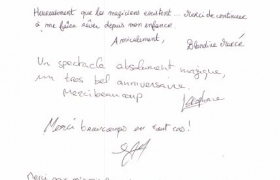 Heureusement que les magiciens existent... Merci de continuer
à me faire rêver depuis mon enfance
Amicalement,
Un spectacle absolument magique,
un tres bel anniversaire.
Merci beaucoup
Merci beaucoups en tout cas!